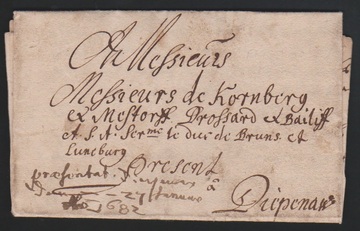 A Messieurs
Messieurs de Kornberg
et Mestorff Drossard et Bailiff
et S. A. Serme le duc de Bruns. et
Luneburg
Present
præsentat.
à
Diepenau
27
1682